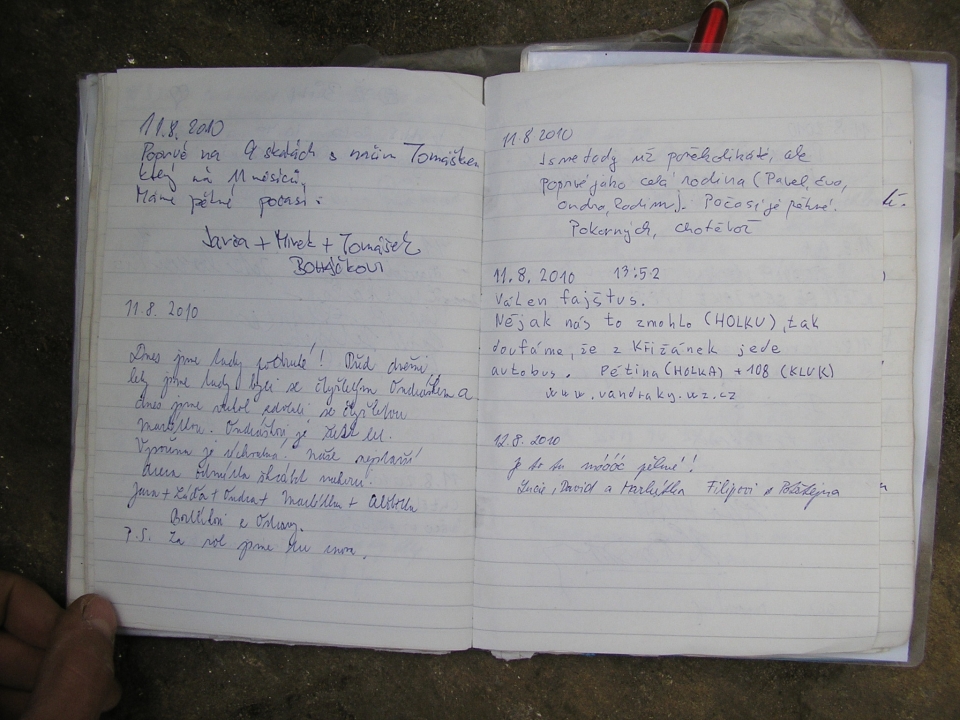 11.8. 2010
Poprvé na 9 skalách s naším Tomáškem
který má 11 měsíců,
Máme pěkné počasí.
Jarka + Mirek + Tomášek
BOHÁČKOVI
11.8. 2010
Dnes jsme tady podruhé! Před dvěmi
lety jsme tady byli se čtyřletým Ondráškem a
dnes jsme výstup zdolali se čtyřletou
Markétkou. Ondráškovi je šest let.
je úchvatná! Naše nejstarší
odmítla
Jana + Láďa + Ondra + Markétka +
z Ostravy.
P.S. Za rok jsme tu znova.
11.8 2010
Jsme tady už poněkolikáté, ale
poprvé jako celá rodina (Pavel, Eva,
Ondra, Radim). Počasí je pěkné.
Pokorných, Chotěboř
11.8. 2010 13:52
Válen fajštus.
Nějak nás to zmohlo (HOLKU), tak
doufáme, že z Křižánek jede
autobus. Pětina (HOLKA) + 108 (KLUK)
www.vandraky.wz.cz
12.8. 2010
Je to tu móóóc pěkné!!
Lucie, David a Markétka Filipovi z